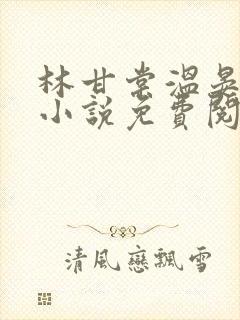 林甘棠溫晏
小說免費閱
清風戀飄雪